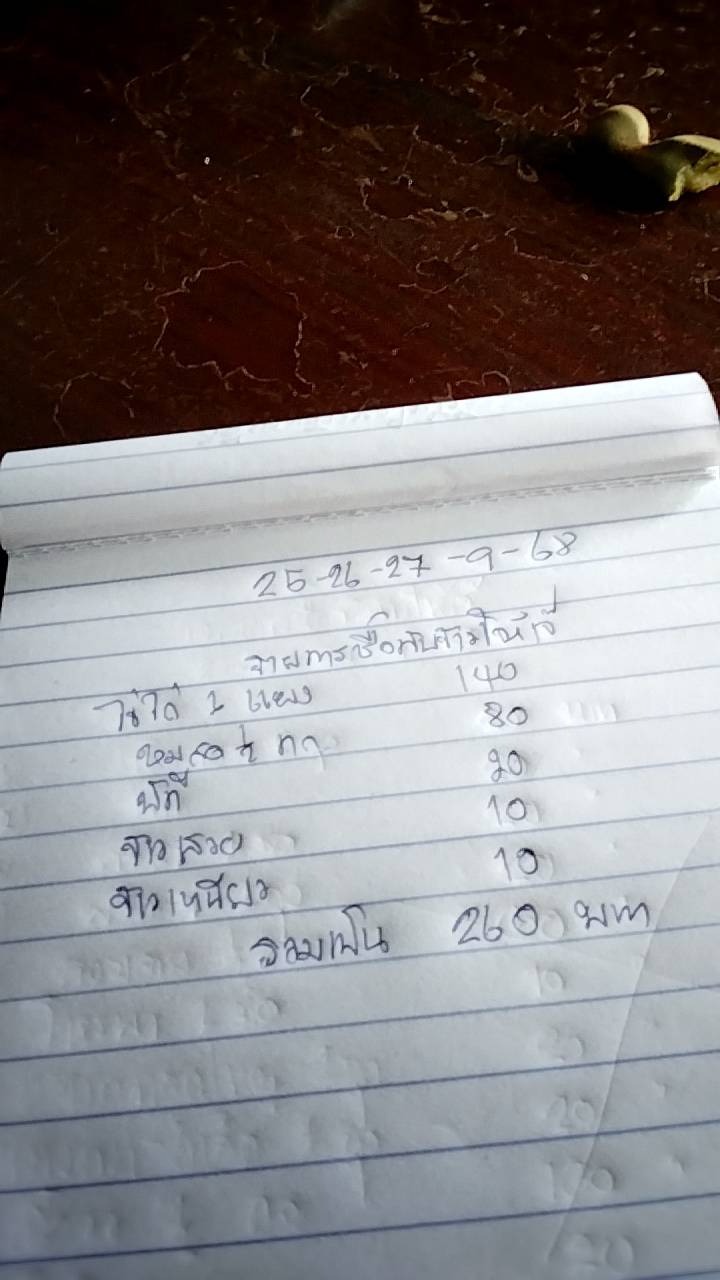 25-26-27-9-68
รายการซื้อกับข้าวให้เจ้
ไข่ไก่ 1 แผง 140
หมูสด ½ กก 80
20
ข้าวสวย 10
ข้าวเหนียว 10
รวมเป็น 260 บาท